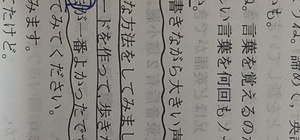 ね。諦めて、英
も。
ね。言葉を覚えるの
しい言葉を何回もノ
書きながら大きい声
な方法をしてみまし
ードを作って、歩き
が一番よかったで
てみてください。
みます。
たけど。